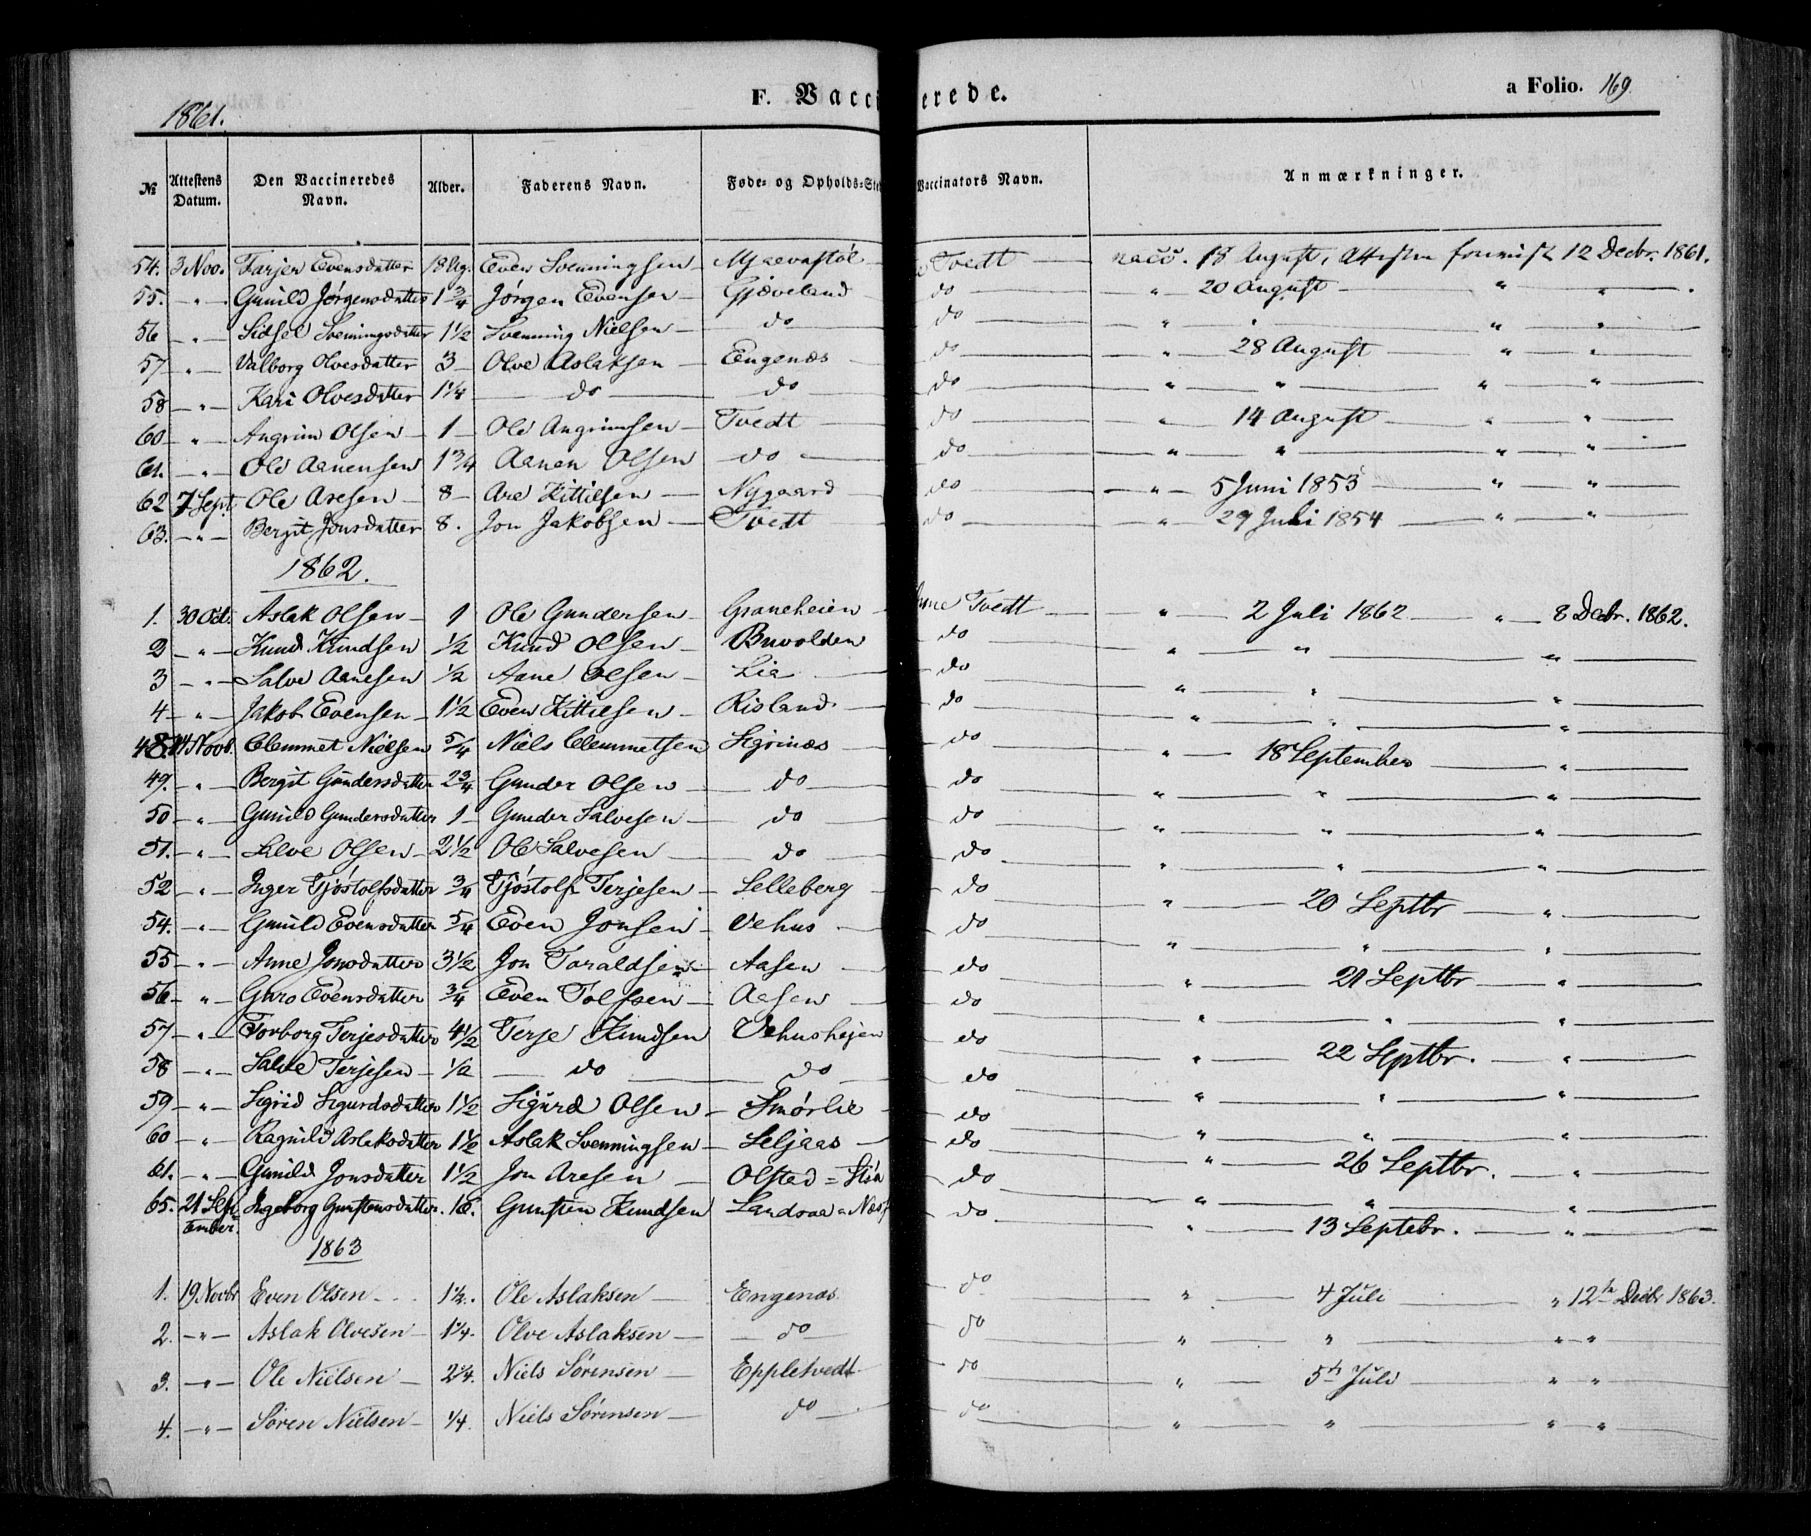 F. Vaccinerede. a Folio. 169.
1861.
№ Attestens Datum. Den Vaccineredes Navn. Alder. Faderens Navn. Føde- og Opholds-Ste Vaccinators Navn. Anmærkninger.
54. 3 Nov. Tarjer Evensdatter 18 Ug. Even Svenningsen Mjaavastøl Tvedt vacc. 18 August, Attesten 12 Decbr. 1861.
55. " Gunild Jørgensdatter 1 3/4 Jørgen Evensen Gjøveland do " 20 August " "
56 " Sidsel Svenningsdatter 1 1/2 Svenning Nielsen do do " " " "
57 " Valborg Olvesdatter 3 Olve Aslaksen Engenæs do " 28 August " "
58 " Kari Olvesdatter 1 1/4 do do do " " " "
60 " Angrim Olsen 1 Ole Angrimsen Tvedt do " 14 August " "
61. " Ole Aanensen 1 3/4 Aanen Olsen do do " " " "
62 7 Sept Ole Aresen 8 Are Kittilsen Nygaard do " 5 Juni 1853 " "
63. " Bergit Jonsdatter 8. Jon Jakobsen Tvedt do " 29 Juli 1854 " "
1862.
1. 30 Oct. Aslak Olsen 1 Ole Gundersen Graneheien Tvedt " 2 Juli 1862 " 8 Decbr. 1862.
2 " Knud Knudsen 1/2 Knud Olsen Buvolden do " " "
3 " Salve Aanesen 1/2 Aane Olsen Lia do " " "
4 " Jakob Evensen 1 1/2 Even Kittilsen Risland do " " "
48 14 Novb. Clemmet Nielsen 5/4 Niels Clemmetsen Sigrinæs do " 18 September "
49. " Bergit Gundersdatter 2 3/4 Gunder Olsen do do " " "
50 " Gunild Gundersdatter 1 Gunder Salvesen do do " " "
51. " Salve Olsen 2 1/2 Ole Salvesen do do " " "
52 " Inger Tjöstolfsdatter 3/4 Tjöstolf Terjesen Selleberg do " 20 Septbr "
54. " Gunild Evensdatter 5/4 Even Jonsen Vehus do " " "
55 " Anne Jonsdatter 3 1/2 Jon Taraldsen Aasen do " 21 Septbr "
56 " Guro Evensdatter 3/4 Even Tolfsen Aasen do " " "
57 " Torborg Terjesdatter 4 1/2 Terje Knudsen Vehusheien do " 22 Septbr. "
58 " Salve Terjesen 1/2 do do do " " "
59 " Sigrid Sigurdsdatter 1 1/2 Sigurd Olsen Smørlie do " " "
60 " Ragnild Aslaksdatter 1 1/2 Aslak Svenningsen Seljaas do " 26 Septbr. "
61. " Gunild Jonsdatter 1 1/2 Jon Aresen Olstad = do " " "
65. 21 September. Ingeborg Gunstensdatter 16. Gunsten Knudsen Landsaa = Næs do " 13 Septebr. "
1863
1. 19 Novbr Even Olsen 1 1/2. Ole Aslaksen Engenæs do " 4 Juli " 12te Decbr 1863.
2. " Aslak Olvesen 1 1/4. Olve Aslaksen do do " " " "
3. " Ole Nielsen 2 1/4. Niels Sörensen Eppletvedt do " 5te Juli " "
4. " Sören Nielsen 1/4. Niels Sörensen do do " " " "